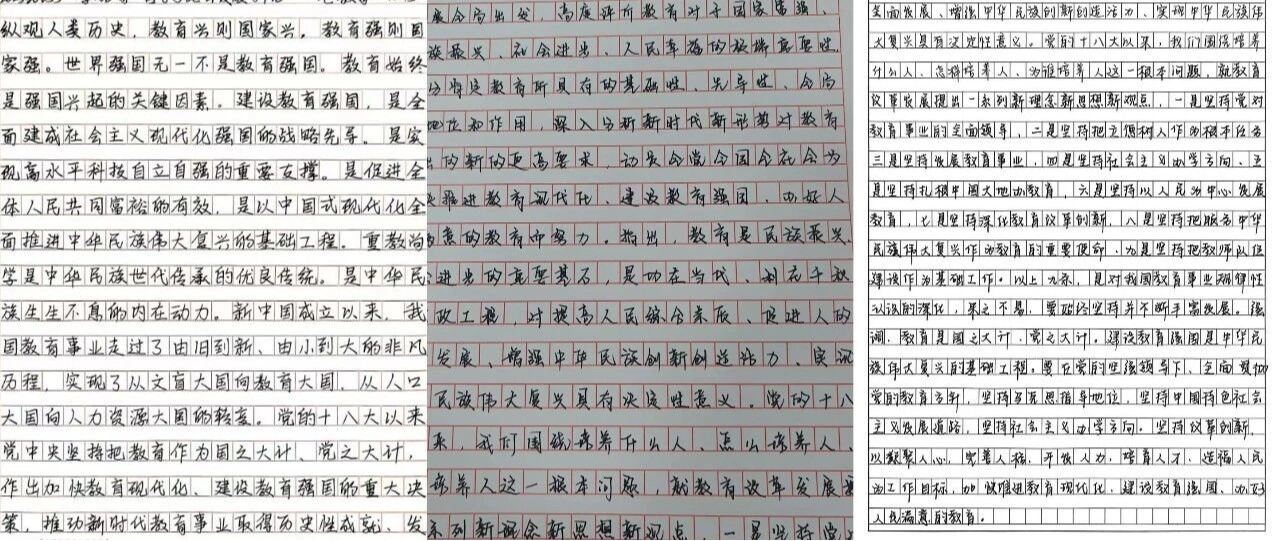 纵观人类历史，教育兴则国家兴。教育强则国
家强。世界强国无一不是教育强国。教育始终
是强国兴起的关键因素。建设教育强国，是全
面建成社会主义现代化强国的战略先导。是实
现高水平科技自立自强的重要支撑。是促进全
体人民共同富裕的有效，是以中国式现代化全
面推进中华民族伟大复兴的基础工程。重教尚
学是中华民族世代传承的优良传统。是中华民
族生生不息的内在动力。新中国成立以来，我
国教育事业走过了由旧到新、由小到大的非凡
历程，实现了从文盲大国向教育大国、从人口
大国向人力资源大国的转变。党的十八大以来
党中央坚持把教育作为国之大计、党之大计，
作出加快教育现代化、建设教育强国的重大决
策，推动新时代教育事业取得历史性成就、发
展全局出发，高度评价教育对于国家富强、
族振兴、社会进步、人民幸福的极端重要性
分肯定教育所具有的基础性、先导性、全局
地位和作用，深入分析新时代新形势对教育
出的新的更高要求，动员全党全国全社会为
推进教育现代化、建设教育强国、办好人
意的教育而努力。指出，教育是民族振兴、
进步的重要基石，是功在当代、利在千秋
政工程，对提高人民综合素质、促进人的
发展、增强中华民族创新创造活力、实现
民族伟大复兴具有决定性意义。党的十八
来，我们围绕培养什么人、怎么培养人、
培养人这一根本问题，就教育改革发展提
系列新理念新思想新观点，一是坚持党
全面发展、增强中华民族创新创造活力、实现中华民族伟
大复兴具有决定性意义。党的十八大以来，我们围绕培养
什么人、怎样培养人、为谁培养人这一根本问题，就教育
改革发展提出一系列新理念新思想新观点，一是坚持党对
教育事业的全面领导，二是坚持把立德树人作为根本任务
三是坚持发展教育事业，四是坚持社会主义办学方向、五
是坚持扎根中国大地办教育，六是坚持以人民为中心发展
教育，七是坚持深化教育改革创新，八是坚持把服务中华
民族伟大复兴作为教育的重要使命，九是坚持把教师队伍
建设作为基础工作。以上九条，是对我国教育事业规律性
认识的深化，来之不易，要始终坚持并不断丰富发展。强
调，教育是国之大计、党之大计。建设教育强国是中华民
族伟大复兴的基础工程，要在党的坚强领导下、全面贯彻
党的教育方针，坚持马克思指导地位，坚持中国特色社会
主义发展道路，坚持社会主义办学方向。坚持改革创新，
以凝聚人心，完善人格，开发人力，培育人才，造福人民
为工作目标，加快推进教育现代化，建设教育强国、办好
人民满意的教育。